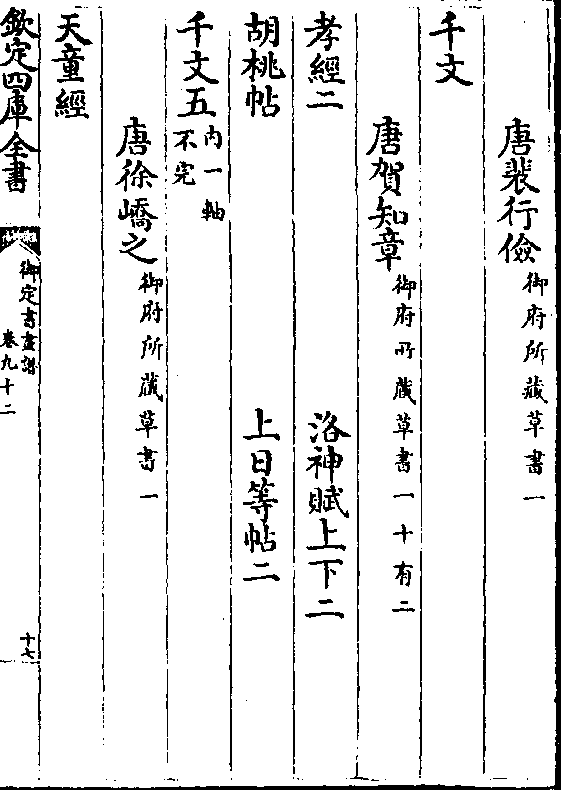 唐裴行儉御府所藏草書一
千文
唐賀知章御府所藏草書一十有二
孝經二 洛神賦上下二
胡桃帖 上日等帖二
千文五內一軸不完
唐徐嶠之御府所藏草書一
天童經
欽定四庫全書 御定書畫譜 卷九十二 十七